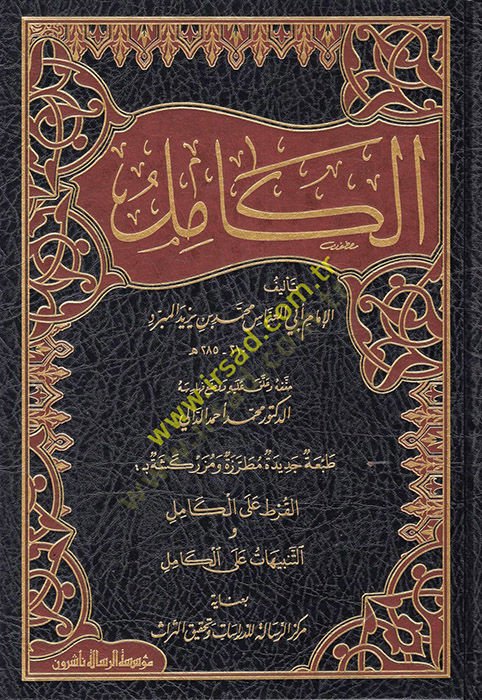 الكامل
تأليف
الإمام أبي العباس محمد بن يزيد المبرد
٢١٠ - ٢٨٥ هـ
حققه وعلق عليه وصنع فهارسه
الدكتور محمد أحمد الدالي
طَبعَة جَديدَة مُطَرَّزَة وَمُزَركَشَة بـ:
القُرط عَلى الكَامِل
و
التَّنبيهَات عَلى الكَامِل
بعناية
مركز الرسالة للدراسات وتحقيق التراث
مؤسسة الرسالة ناشرون
www.irsad.com.tr